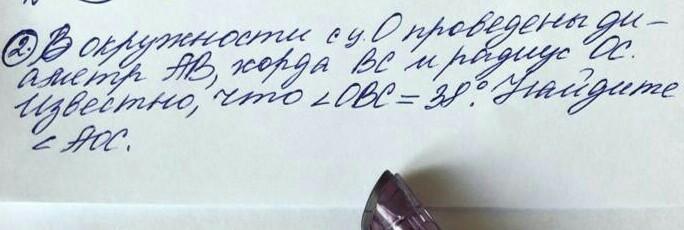 2. В окружности с ц. О проведены ди-
аметр АВ, хорда ВС и радиус ОС.
Известно, что ∠ОВС = 38°. Найдите
∠ АОС.